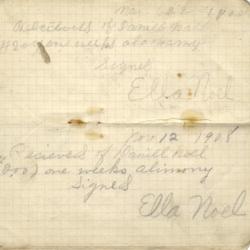 Received of Daniel Noel
one weeks alimony
Signed
Ella Noel
Nov 12 1908
Recieved of Daniel Noel
one weeks alimony
Signed
Ella Noel